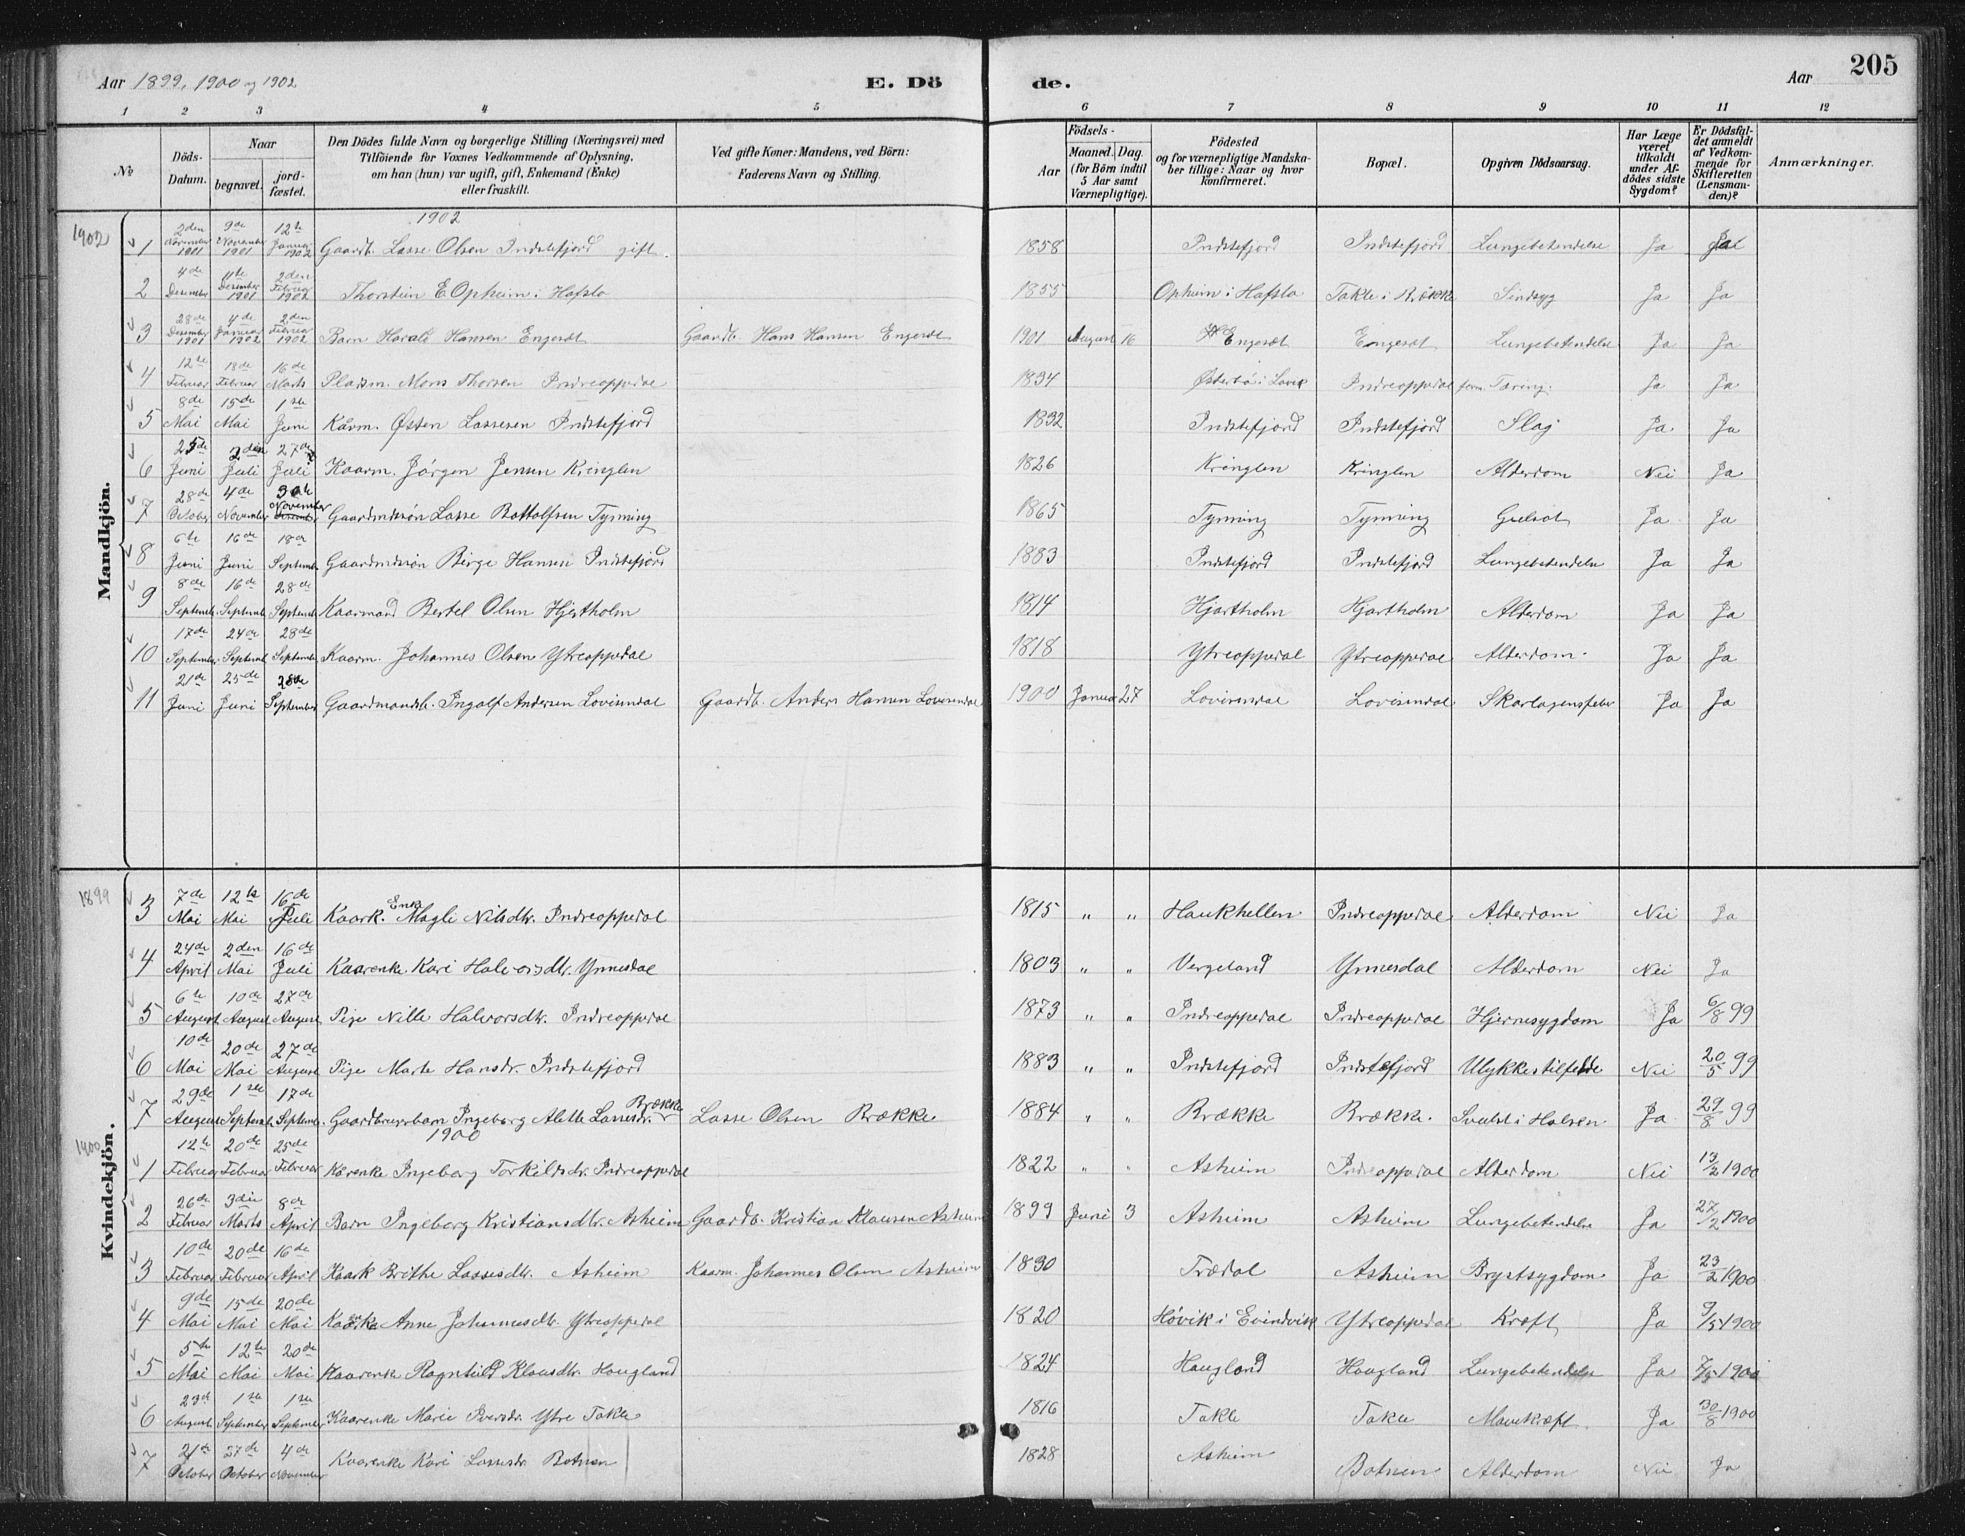 Aar 1899, 1900 og 1902 E. Dö de. Aar 205
1 2 3 4 5 6 7 8 9 10 11 12
№
Döds-Datum.
Naar
begravet.
jord-fæstet.
Den Dödes fulde Navn og borgerlige Stilling (Næringsvei) med
Tilföiende for Voxnes Vedkommende af Oplysning,
om han (hun) var ugift, gift, Enkemand (Enke)
eller fraskilt.
Ved gifte Koner: Mandens, ved Börn:
Faderens Navn og Stilling.
Födsels-
Aar
Maaned. Dag.
(for Börn indtil
5 Aar samt
Værnepligtige).
Födested
og for værnepligtige Mandska-
ber tillige: Naar og hvor
konfirmeret.
Bopæl.
Opgiven Dödsaarsag.
Har Læge
været
tilkaldt
under Af-
dödes sidste
Sygdom?
Er Dödsfal-
det anmeldt
af Vedkom-
mende for
Skifteretten
(Lensman-
den)?
Anmærkninger.
Mandkjön.
1902
1902
1 2den November 1901 9de November 1901 12te Januar 1902 Gaardb. Lasse Olsen Indstefjord gift. 1858 Indstefjord Indstefjord Lungebetendelse Ja Ja
2 4de Desember 11te Desember 1901 2den Februar 1902 Thorstein E Opheim i Hafslo 1855 Opheim i Hafslo Takle i Brække Sindsyg Ja Ja
3 28de Desember 1901 4de Januar 1902 2den Februar 1902 Barn Harald Hansen Engesæt Gaardb. Hans Hansen Engesæt 1901 August 16 Engesæt Engesæt Lungebetendelse Ja Ja
4 12te Februar 18de Februar 16de Marts Pladsm. Mons Thorsen Indreoppedal 1834 Østerbø i Lavik Indreoppedal Tæring. Ja Ja
5 8de Mai 15de Mai 1ste Juni Kaarm. Østen Lassesen Indstefjord 1832 Indstefjord Indstefjord Slag Ja Ja
6 25de Juni 2den Juli 27de Juli Kaarm. Jørgen Jensen Kringlen 1826 Kringlen Kringlen Alderdom Nei Ja
7 28de October 4de November 30te November Gaardmdssøn Lasse Bottolfsen Tynning 1865 Tynning Tynning Gulsot Ja Ja
8 6te Juni 16de Juni 18de Septemb. Gaardmdssøn Børge Hansen Indstefjord 1883 Indstefjord Indstefjord Lungebetendelse Ja Ja
9 8de Septemb. 16de Septemb. 28de Septemb. Kaarmand Bertel Olsen Hjertholm 1814 Hjartholm Hjartholm Alderdom Ja Ja
10 17de September 24de Septemb. 28de September Kaarm. Johannes Olsen Ytreoppedal 1818 Ytreoppedal Ytreoppedal Alderdom. Ja Ja
11 21de Juni 25de Juni 28de September Gaardmandsb. Ingolf Andersen Lovisendal Gaardb. Anders Hansen Lovisendal 1900 Januar 27 Lovisendal Lovisendal Skarlagensfeber Ja Ja
Kvindekjön.
1899
3 7de Mai 12te Mai 16de Juli Kaark. Enke Magli Nilsdtr. Indreoppedal 1815 " " Haukhellen Indreoppedal Alderdom Nei Ja
4 24de April 2den Mai 16de Juli Kaarenke Kari Halvorsdtr. Ynnesdal 1803 " " Vergeland Ynnesdal Alderdom Nei Ja
5 6te August 10de August 27de August Pige Nille Halvorsdtr. Indreoppedal 1873 " " Indreoppedal Indreoppedal Hjernesygdom Ja 6/8 99
6 10de Mai 20de Mai 27de August Pige Marte Hansdr. Indstefjord 1883 " " Indstefjord Indstefjord Ulykkestilfelde Nei 20/5 99
7 29de August 1ste Septemb. 17de Septemb. Gaardbrugerbarn Ingeborg Alette Lassesdr. Brække Lasse Olsen Brække. 1884 " " Brække Brække. Svulst i Halsen. Ja 29/8 99
1900
1900
1 12te Februar 20de Februar 25de Februar Kårenke Ingeborg Torkilsdr. Indreoppedal 1822 " " Asheim Indreoppedal Alderdom Nei 13/2 1900
2 26de Februar 3die Marts 8de April Barn Ingeborg Kristiansdtr. Asheim Gaardb. Kristian Klausen Asheim 1899 Juni 3 Asheim Asheim Lungebetendelse Ja 27/2 1900
3 10de Februar 20de Februar 16de April Kaark Brithe Lassesdtr. Asheim Kaarm. Johannes Olsen Asheim 1830 Trædal Asheim Brystsygdom Ja 23/2 1900
4 9de Mai 15de Mai 20de Mai Anne Johannesdtr. Ytreoppedal 1820 Høvik i Evindvik Ytreoppedal Kræft Ja 9/5 1900
5 5te Mai 12te Mai 20de Mai Kaarenke Ragnhild Klausdtr. Hougland 1824 Hougland Hougland Lungebetendelse Ja 7/5 1900
6 23d August 1ste September 1ste September Kaarenke Marie Iversdr. Ytre Takle 1816 Takle Takle Mavekræft. Ja 30/8 1900
7 21de October 27de October 4de November Kaarenke Kari Lassesdr. Botnen 1828 Asheim Botnen Alderdom Nei Ja